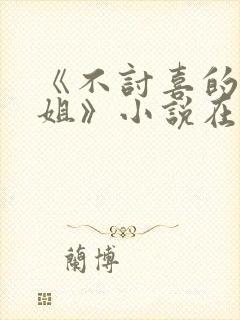 《不討喜的
姐》小說在
蘭博